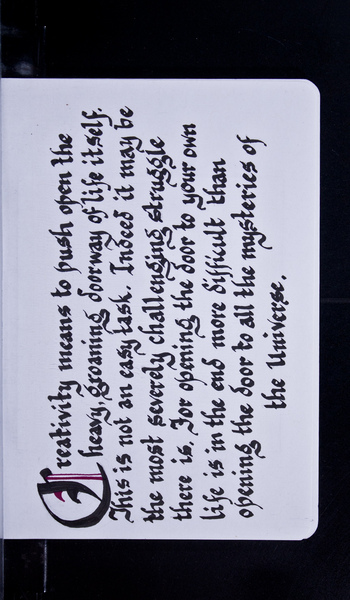 Creativity means to push open the
heavy, groaning doorway of life itself.
This is not an easy task. Indeed it may be
the most severely challenging struggle
there is. For opening the door to your own
life is in the end more difficult than
opening the door to all the mysteries of
the Universe.